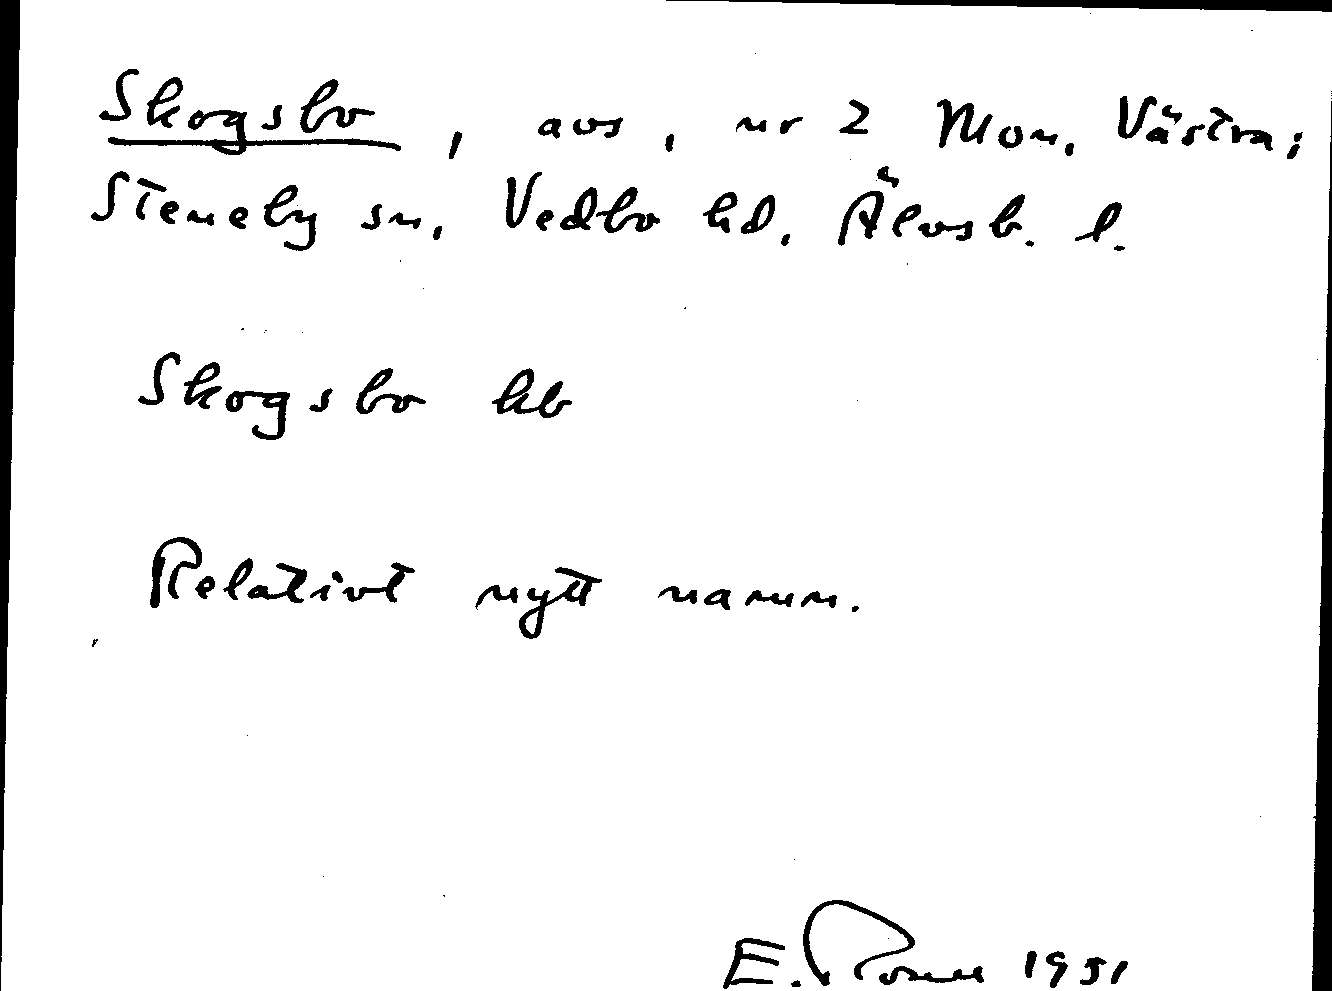 Skogsbo, avs, nr 2 Mon, Västra;
Steneby sn, Vedbo hd, Älvsb. l.
Skogsbo kb
Relativt nytt namn.
E. 1951